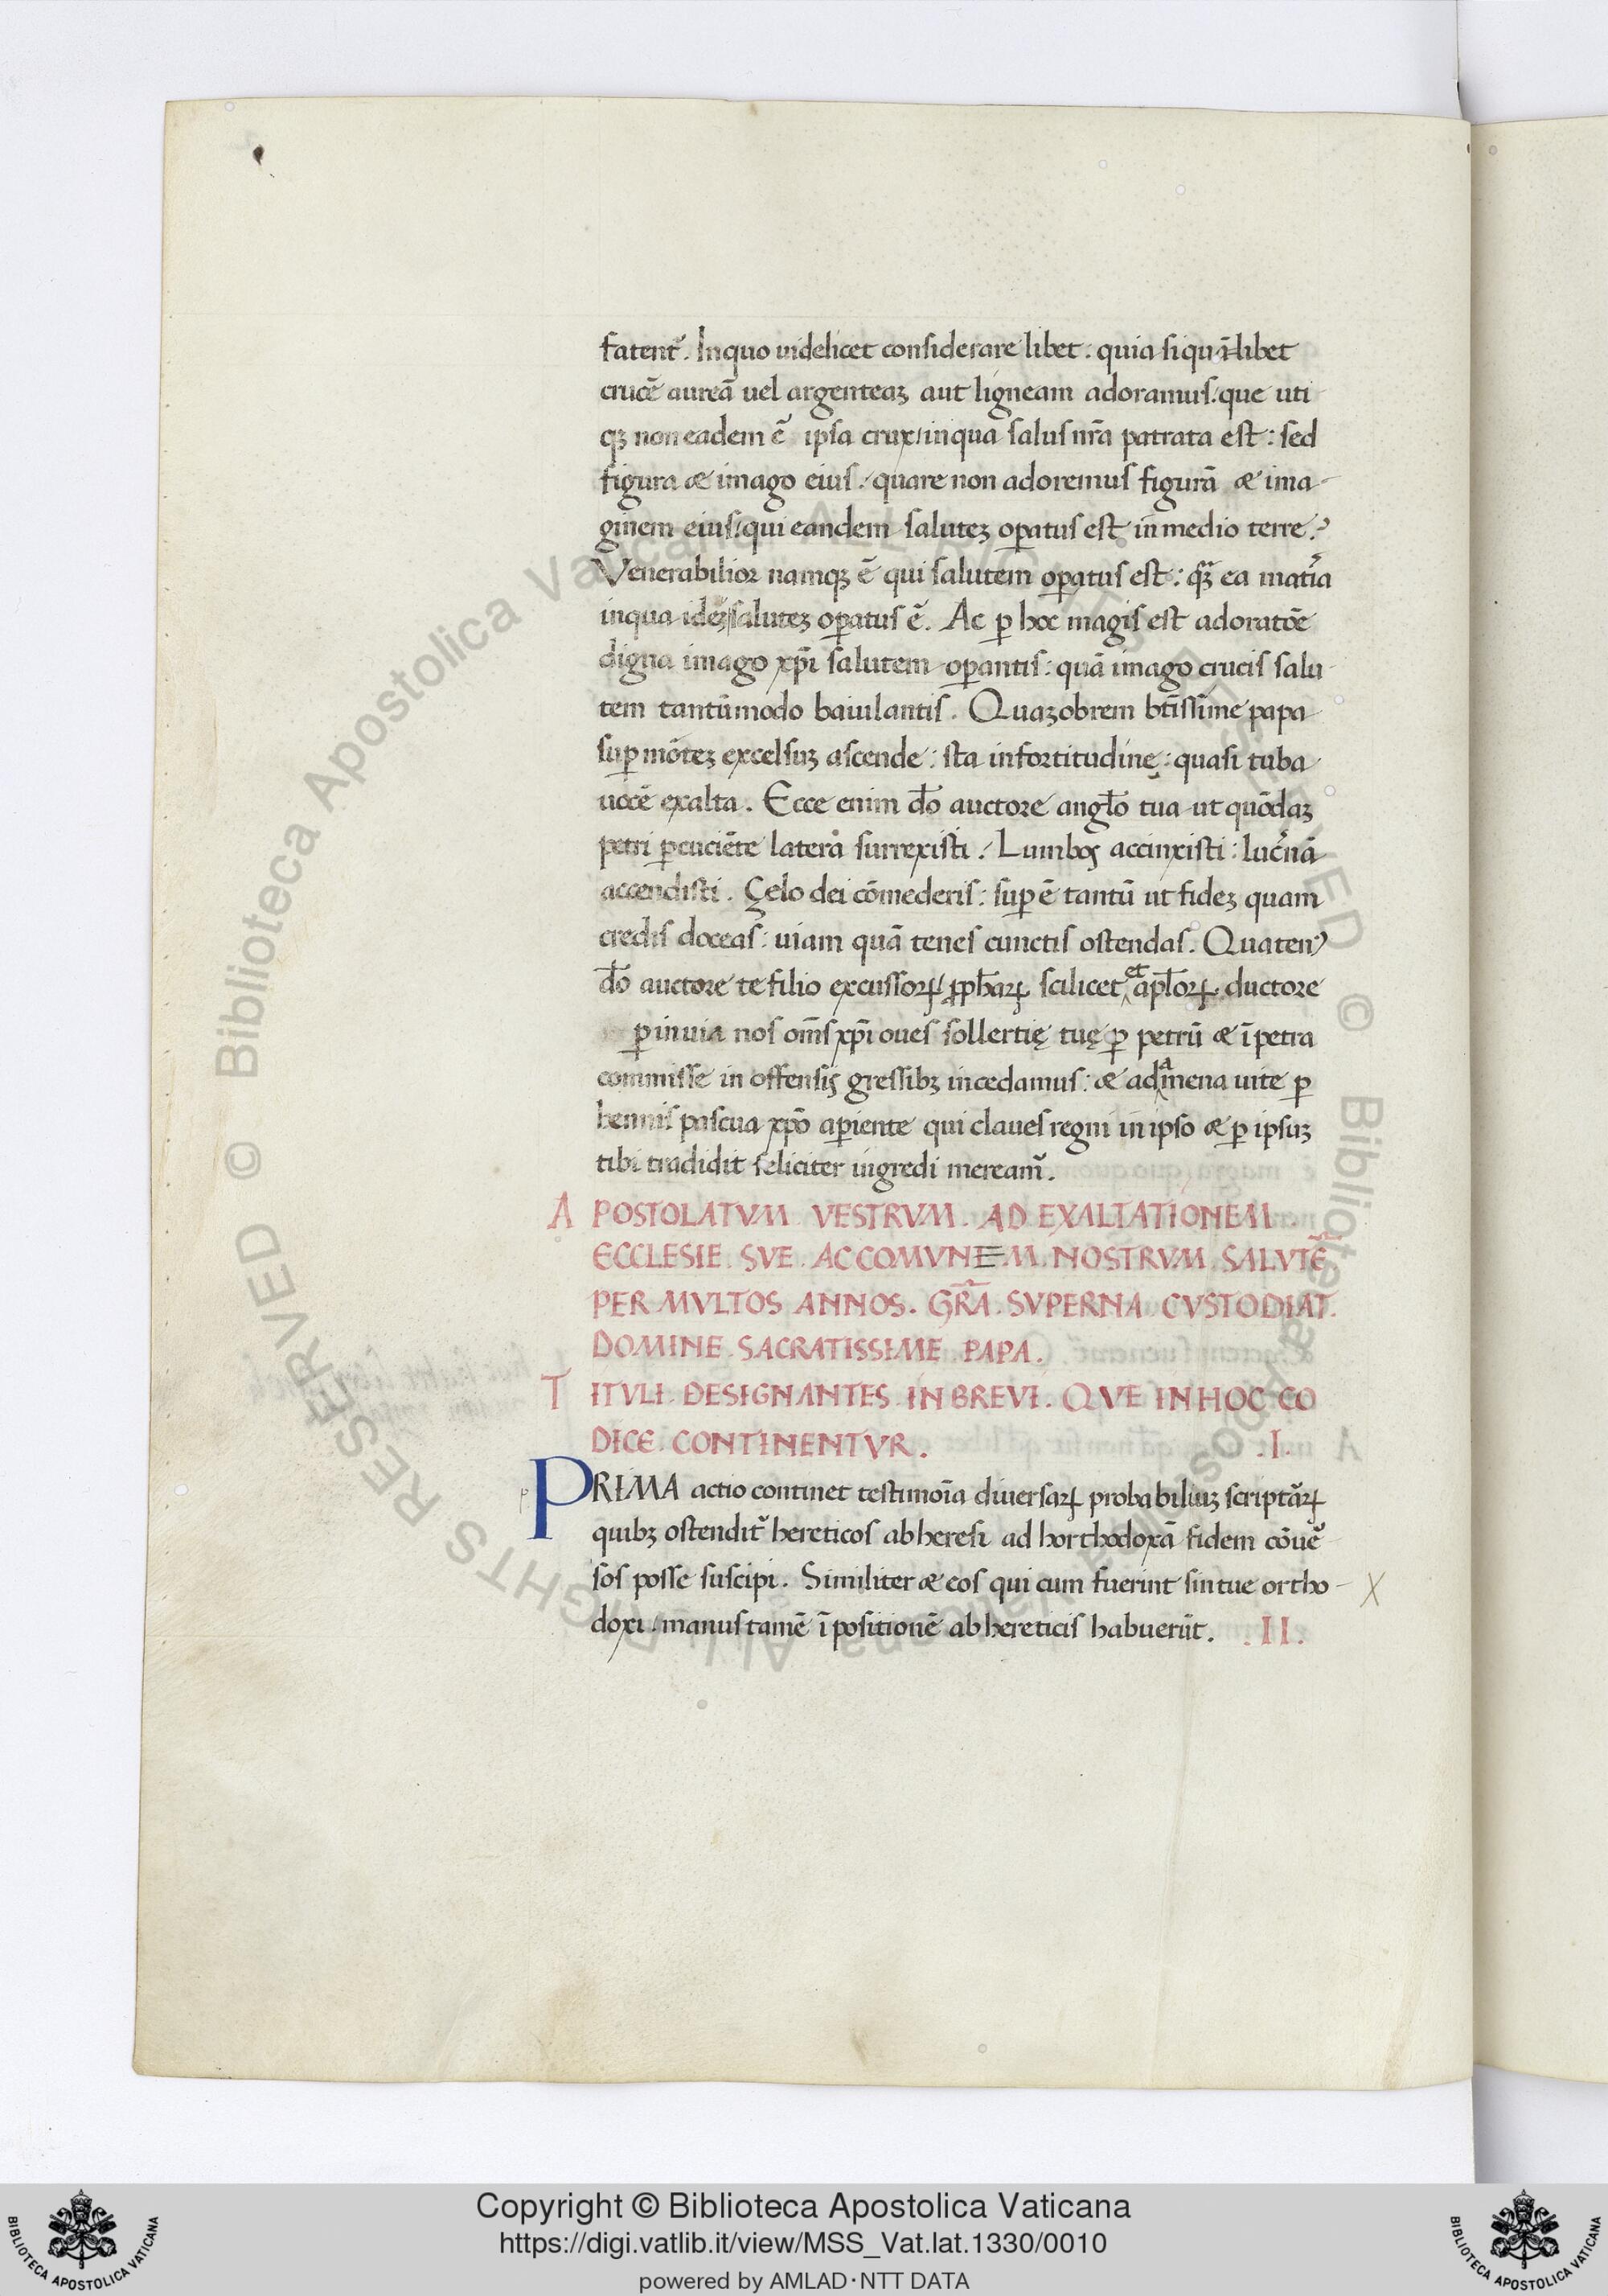 fatent᷑. Inquo uidelicet considerare libet: quia siquālibet
crucē aureā uel argenteaꝫ aut ligneam adoramus: que uti
qꝫ non eadem ē ipsa crux/ inqua salus nr̄a patrata est: sed
figura & imago eius: quare non adoremus figurā & ima-
ginem eius/ qui eandem saluteꝫ oꝑatus est in medio terre?
Venerabilior namqꝫ ē qui salutem oꝑatus est: ꝙꝫ ea mat̄ia
inqua ideꝫ saluteꝫ oꝑatus ē. Ac ꝑ hoc magis est adoratōe
digna imago xp̄i salutem oꝑantis: quā imago crucis salu
tem tantūmodo baiulantis. Quaꝫobrem bt̄issime papa
suꝑ mōteꝫ excelsuꝫ ascende: sta infortitudine: quasi tuba
uocē exalta. Ecce enim dō auctore angl̄o tua ut quōdaꝫ
petri ꝑcuciēte latera surrexisti. Lumbos accinxisti: luc̄nā
accendisti. Çelo dei cōmederis: suꝑ ē tantū ut fideꝫ quam
credis doceas: uiam quā tenes cunctis ostendas. Quatenꝰ
dō auctore te filio excussoꝝ/ ꝓph̄aꝝ scilicet et apl̄oꝝ ductore
ꝑ inuia nos om̄s xp̄i oues sollertię tuę ꝑ petrū & ī petra
commisse in offensis gressibꝫ incedamus: & ad amena uite ꝑ
hennis pascua xp̄o aꝑiente qui claues regni in ipso & ꝑ ipsuꝫ
tibi tradidit feliciter ingredi meream᷑.
APOSTOLATVM VESTRVM. AD EXALTATIONEM.
ECCLESIE. SVE. AC COMVNEM. NOSTRVM. SALVTĒ
PER MVLTOS ANNOS. GR̄A. SVPERNA CVSTODIAT.
DOMINE. SACRATISSIME PAPA.
TITVLI. DESIGNANTES. IN BREVI. QVE IN HOC CO
DICE. CONTINENTVR. .I.
PRIMA actio continet testimoīa diuersaꝝ probabiliuꝫ scriptāꝝ
quibꝫ ostendit᷑ hereticos ab heresi ad horthodoxā fidem cōuē
sos posse suscipi. Similiter & eos qui cum fuerint sintue ortho-
doxi/ manus tamē īpositionē ab hereticis habuerūt. .II.
X
Copyright © Biblioteca Apostolica Vaticana
https://digi.vatlib.it/view/MSS_Vat.lat.1330/0010
powered by AMLAD·NTT DATA
BIBLIOTECA APOSTOLICA VATICANA
BIBLIOTECA APOSTOLICA VATICANA
© Biblioteca Apostolica Vaticana ALL RIGHTS RESERVED
© Biblioteca Apostolica Vaticana ALL RIGHTS RESERVED